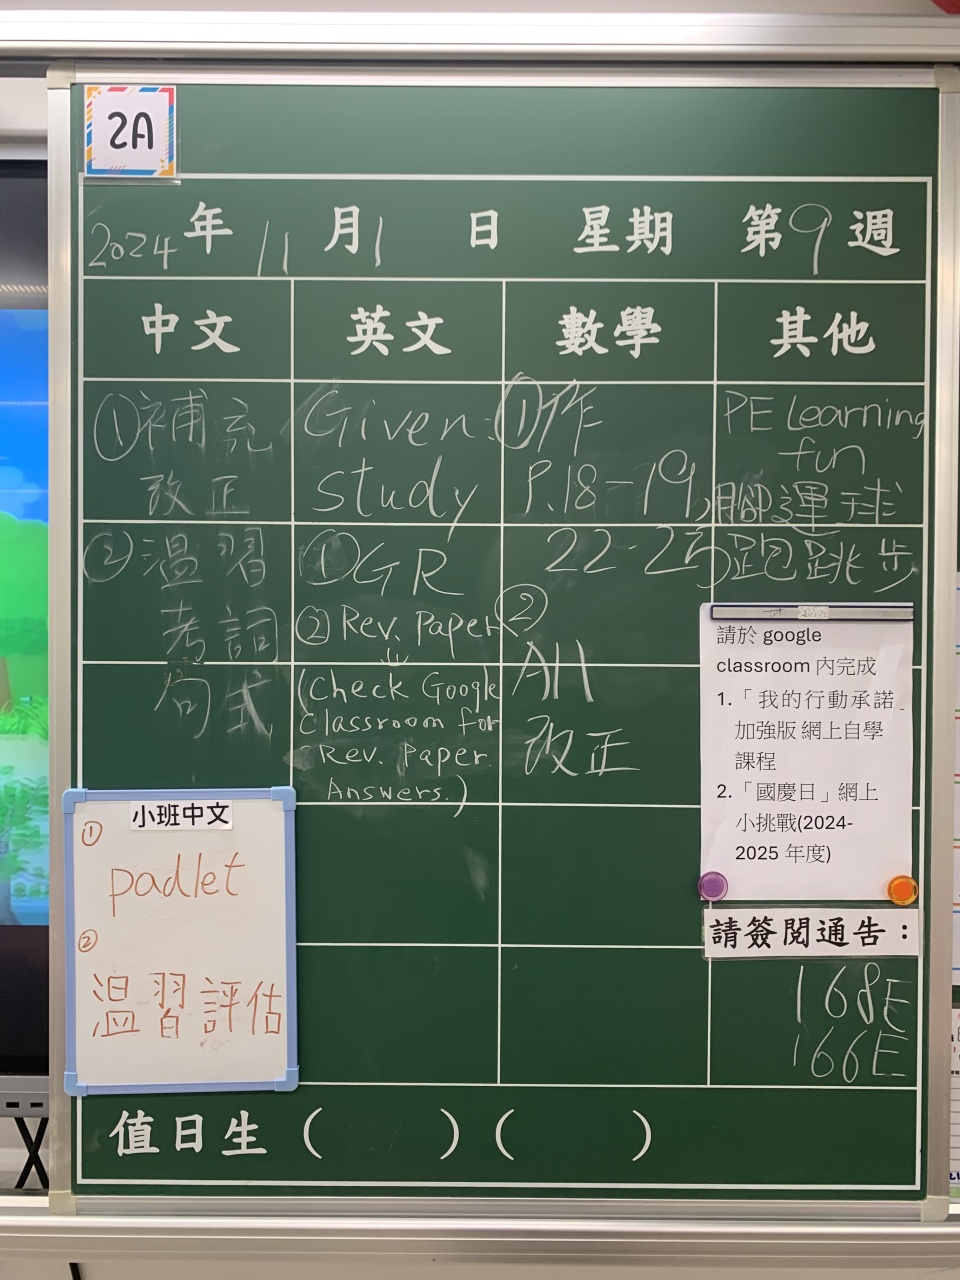 2A
2024年 11月1 日 星期 第9週
中文 英文 數學 其他
①補充
改正
②溫習
考詞
句式
Given:
study
①GR
②Rev. Paper
(Check Google
Classroom for
Rev. Paper
Answers.)
①作
P.18-19,
22-25
②
All
改正
PE Learning
fun
腳運球
跑跳步
請於 google
classroom 內完成
1.「我的行動承諾」
加強版 網上自學
課程
2.「國慶日」網上
小挑戰(2024-
2025 年度)
請簽閱通告：
168E
166E
小班中文
①
padlet
②
溫習評估
值日生 ( ) ( )